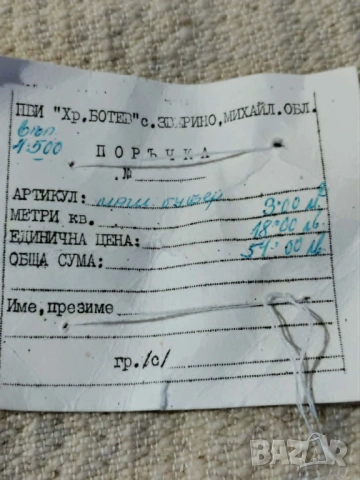 ПБИ "Хр.БОТЕВ"с.ЗВЕРИНО,МИХАЙЛ.ОБЛ.
4.500
ПОРЪЧКА
№
АРТИКУЛ:
МЕТРИ кв. 3.00 м²
ЕДИНИЧНА ЦЕНА: 18.00 лв.
ОБЩА СУМА: 54.00 лв.
Име,презиме
гр./с/
BAZAR